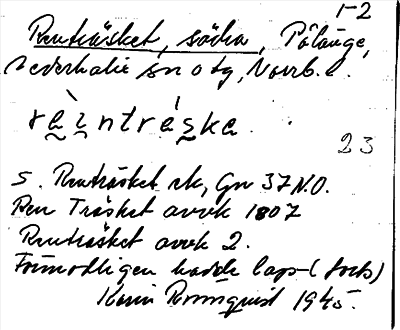 1-2
Renträsket, södra, Pålänge,
Nederkalix sn o tg, Norrb. l.
rèi̯ntrá̱ske.
23
S. Renträsket rk, Gn 37 N.O.
Ren Träsket avvk 1807
Renträsket avvk 2.
Förmodligen hadde lapp- (fork)
Karin Rönnquist 1945.